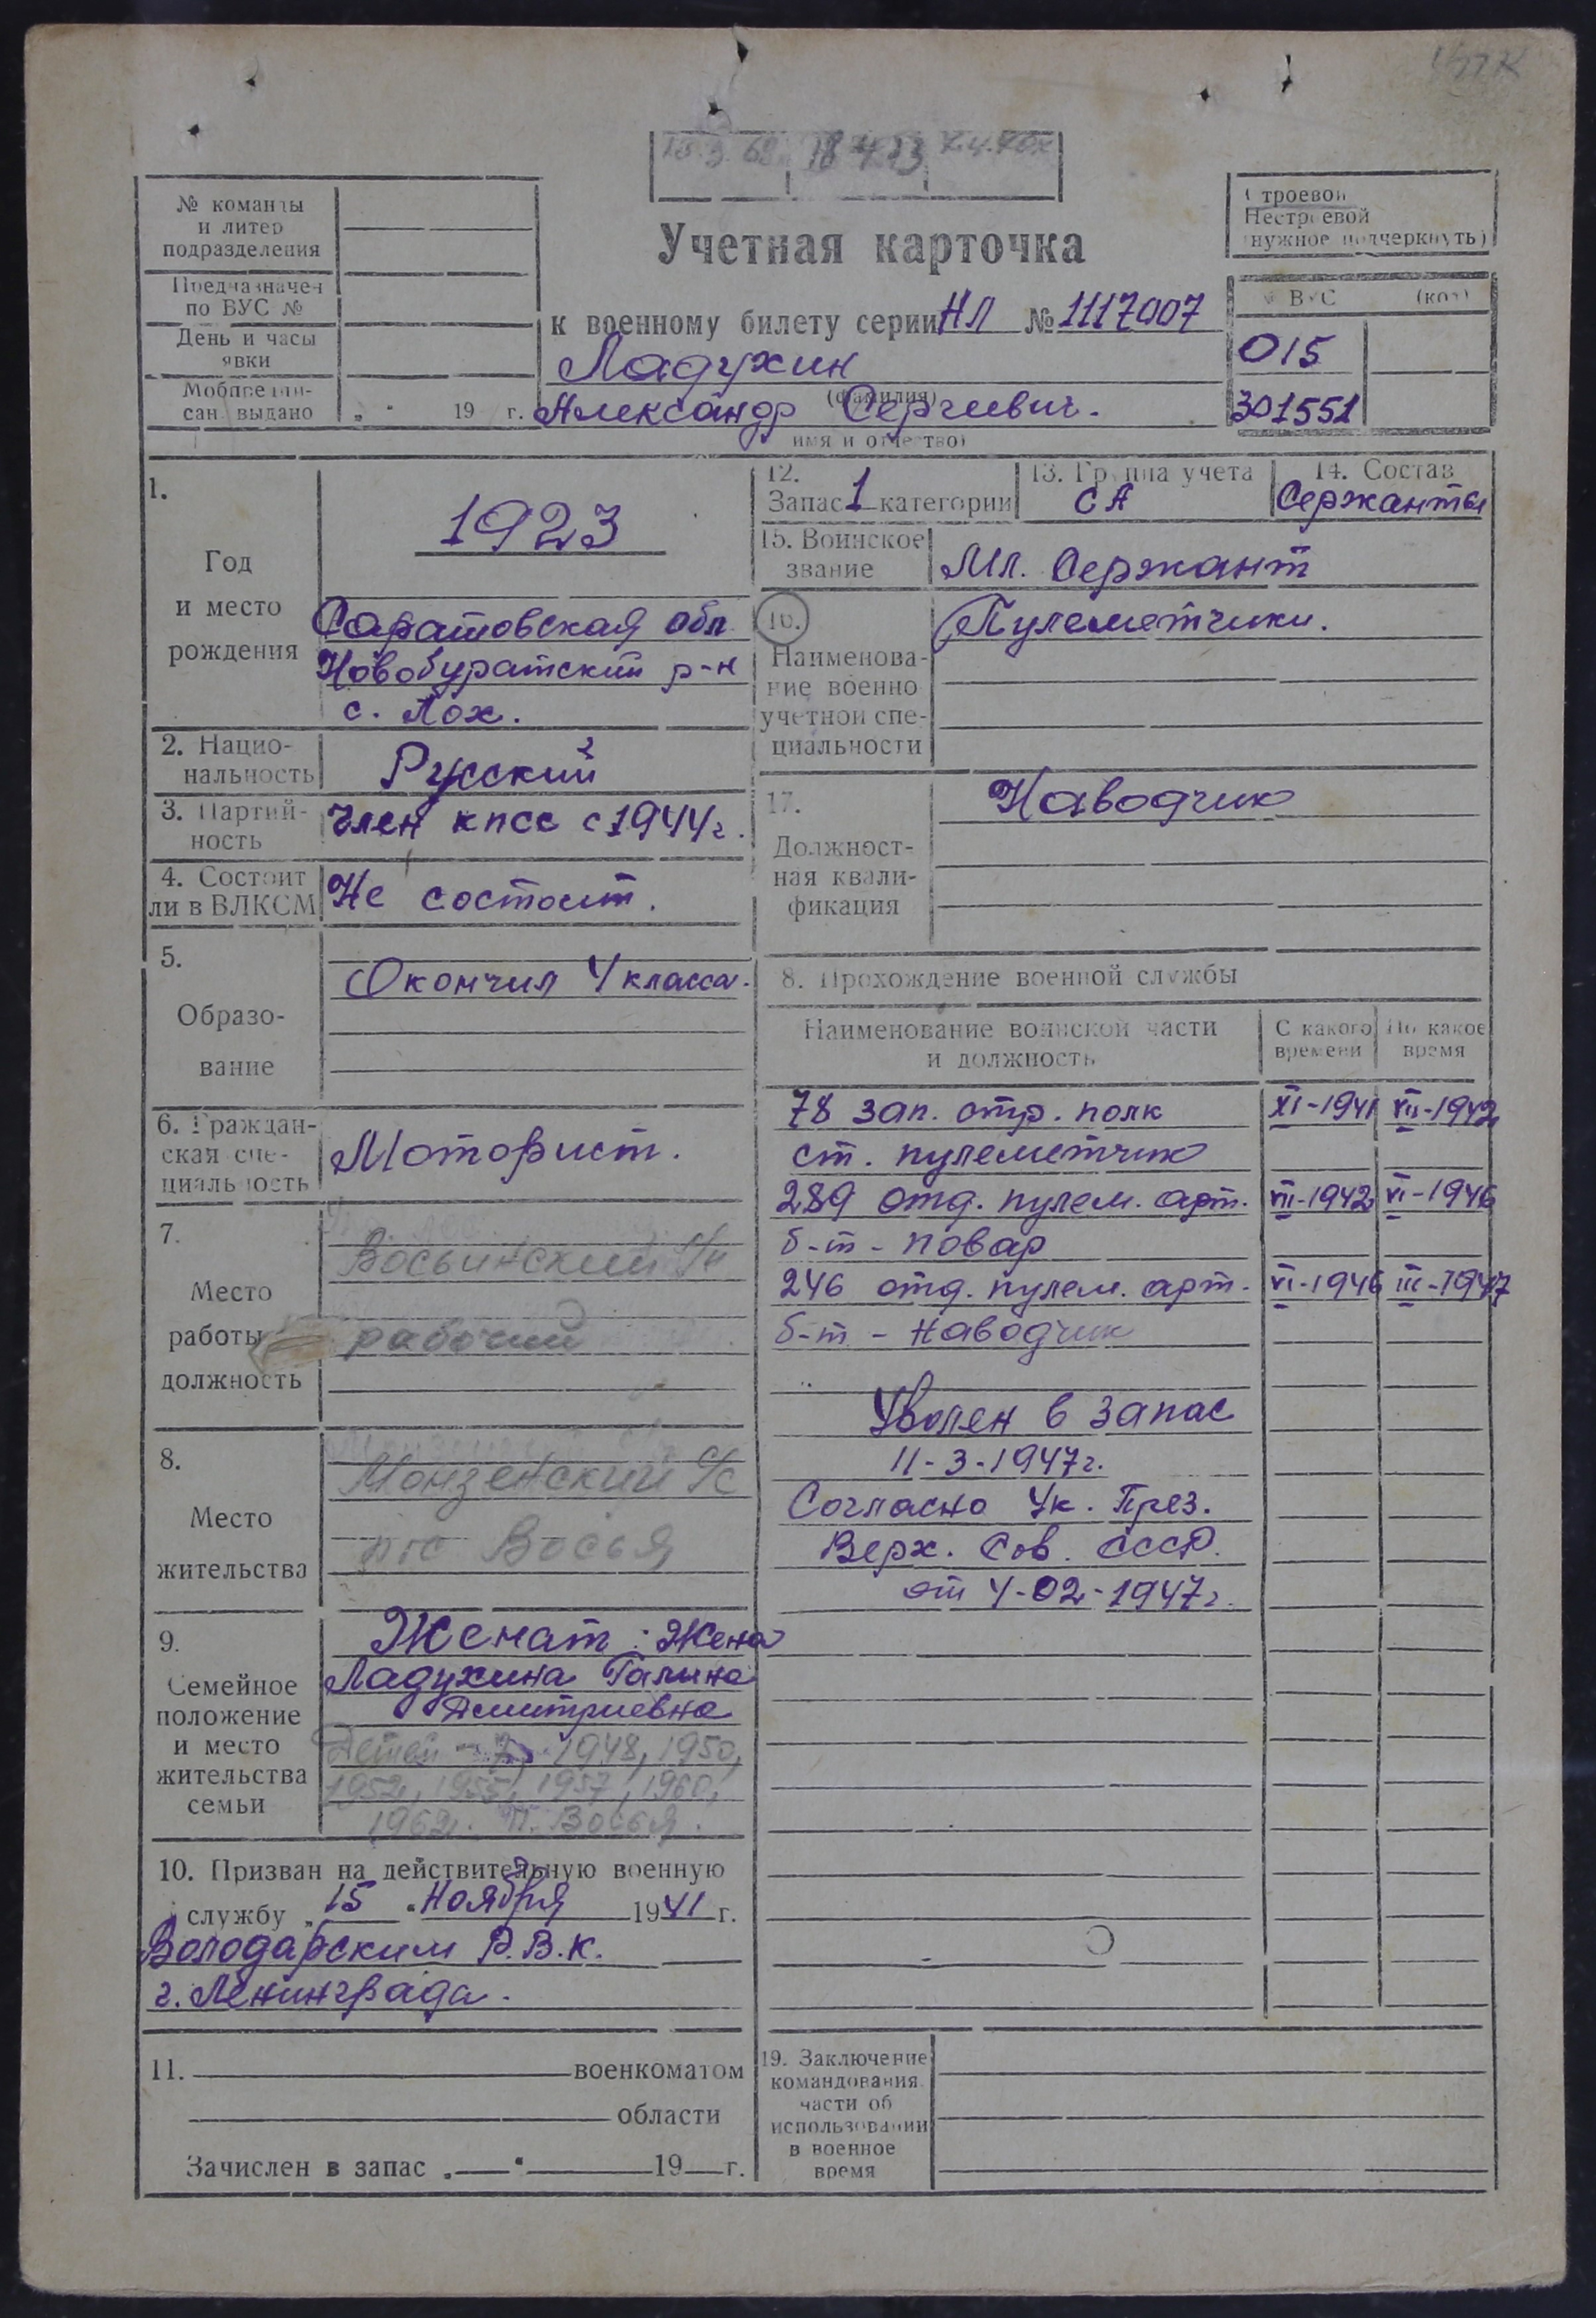 18 4.73
№ команды
и литер
подразделения
Предназначен
по ВУС №
День и часы
явки
Мобпредпи-
сан. выдано „ “ 19 г.
Учетная карточка
к военному билету серии НЛ № 1117007
Ладухин
(фамилия)
Александр Сергиевич.
имя и отчество)
Строевой
Нестроевой
(нужное подчеркнуть)
ВУС (код)
015
301551
1.
Год
и место
рождения
1923
Саратовская обл
Новобуратский р-н
с. Лох.
2. Нацио-
нальность
Русский
3. Партий-
ность
Член КПСС с 1944г.
4. Состоит
ли в ВЛКСМ
Не состоит.
5.
Образо-
вание
Окончил 4 класса.
6. Граждан-
ская спе-
циальность
Моторист.
7.
Место
работы
должность
Восьинский
рабочий
8.
Место
жительства
Монзенский с/с
пос Восья
9.
Семейное
положение
и место
жительства
семьи
Женат: Жена
Ладухина Галина
Дмитриевна
Детей - 7, 1948, 1950,
1952, 1955, 1957, 1960,
1962. п. Восья.
10. Призван на действительную военную
службу „ 15 “ Ноября 1941 г.
Володарским Р.В.К.
г. Ленинграда.
11. военкоматом
области
Зачислен в запас „ “ 19 г.
12.
Запас 1 категории
13. Группа учета
СА
14. Состав
Сержанты
15. Воинское
звание
Мл. Сержант
16.
Наименова-
ние военно
учетной спе-
циальности
Пулеметчики.
17.
Должност-
ная квали-
фикация
Наводчик
8. Прохождение военной службы
Наименование воинской части
и должность
С какого
времени
По какое
время
78 зап. стр. полк XI-1941 VII-1942
ст. пулеметчик
289 отд. пулем. арт. VII-1942 VI-1946
б-т - повар
246 отд. пулем. арт. VI-1946 III-1947
б-т - наводчик
Уволен в запас
11-3-1947г.
Согласно Ук. През.
Верх. Сов. СССР.
от 4-02-1947г.
19. Заключение
командования
части об
использовании
в военное
время